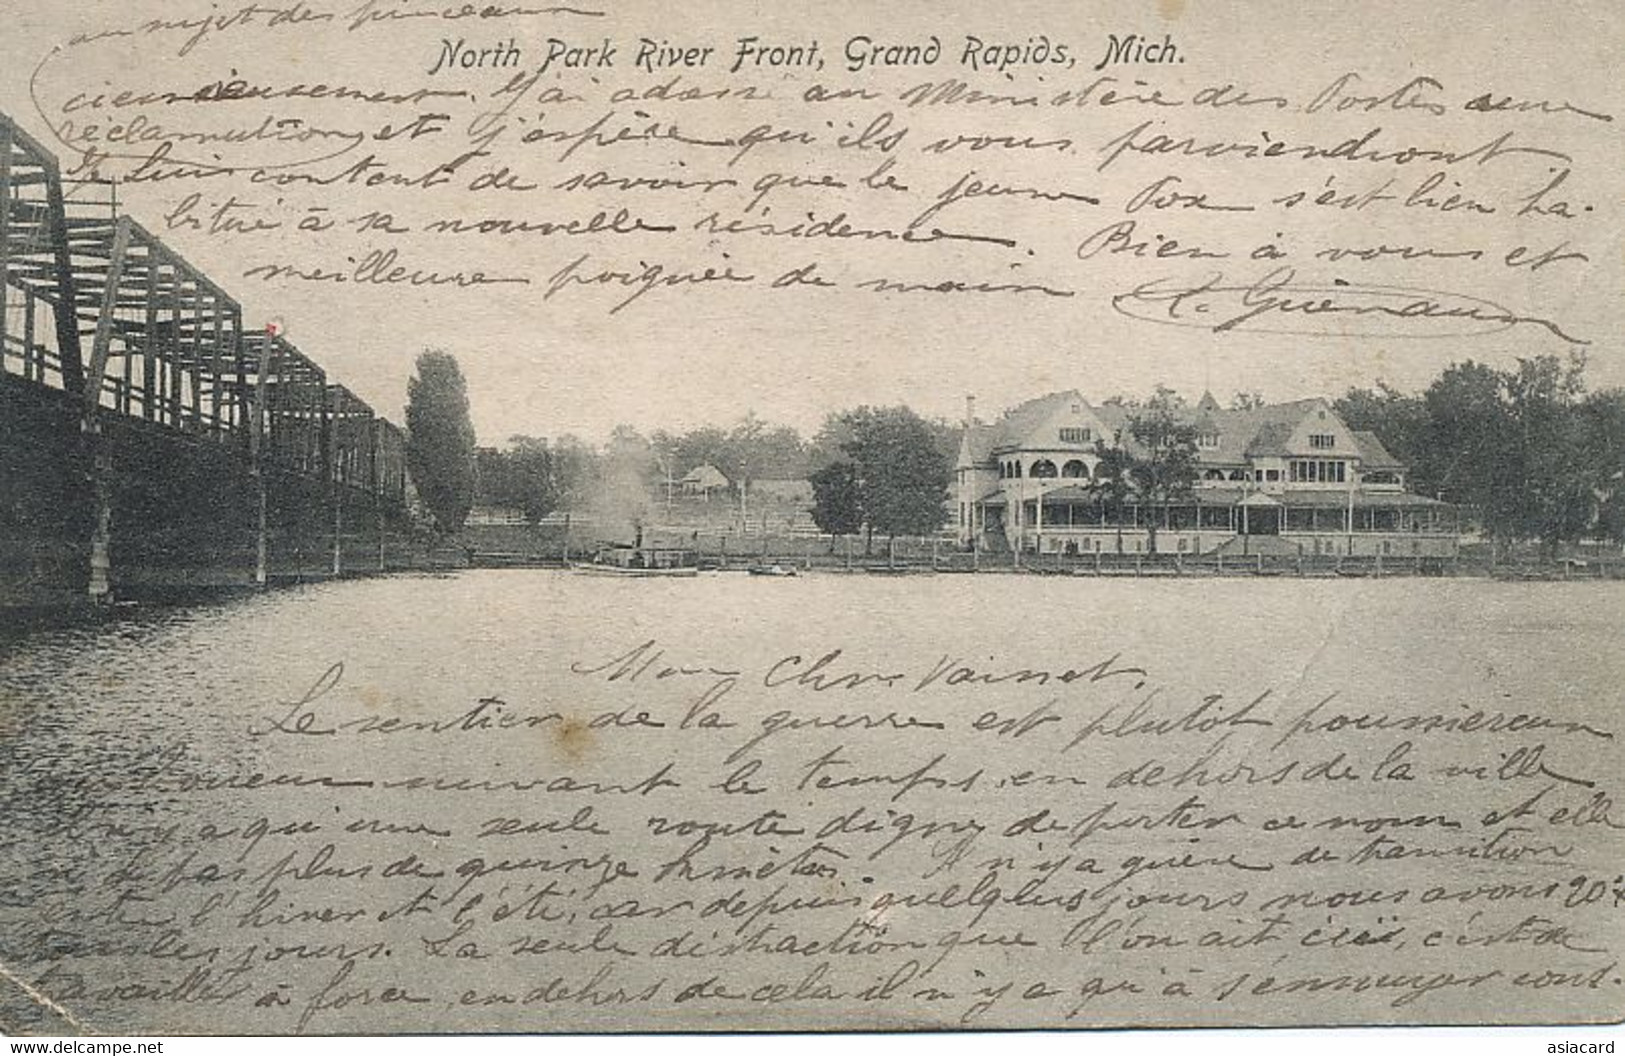 au sujet des pinceaux
North Park River Front, Grand Rapids, Mich.
ciencieusement. J'ai adressé au Ministère des Postes une
réclamation et j'espère qu'ils vous parviendront
Je suis content de savoir que le jeune Fox s'est bien ha-
bitué à sa nouvelle résidence. Bien à vous et
meilleure poignée de main
Mon Cher Vainet,
Le sentier de la guerre est plutôt poussiereux
suivant le temps, en dehors de la ville
il n'y a qu'une seule route digne de porter ce nom et elle
n'a pas plus de quinze kmètres. Il n'y a guère de transition
entre l'hiver et l'été, car depuis quelques jours nous avons 20°
tous les jours. La seule distraction que l'on ait ici, c'est de
travailler à force, en dehors de cela il n'y a qu'à s'ennuyer cons-
www.delcampe.net
asiacard